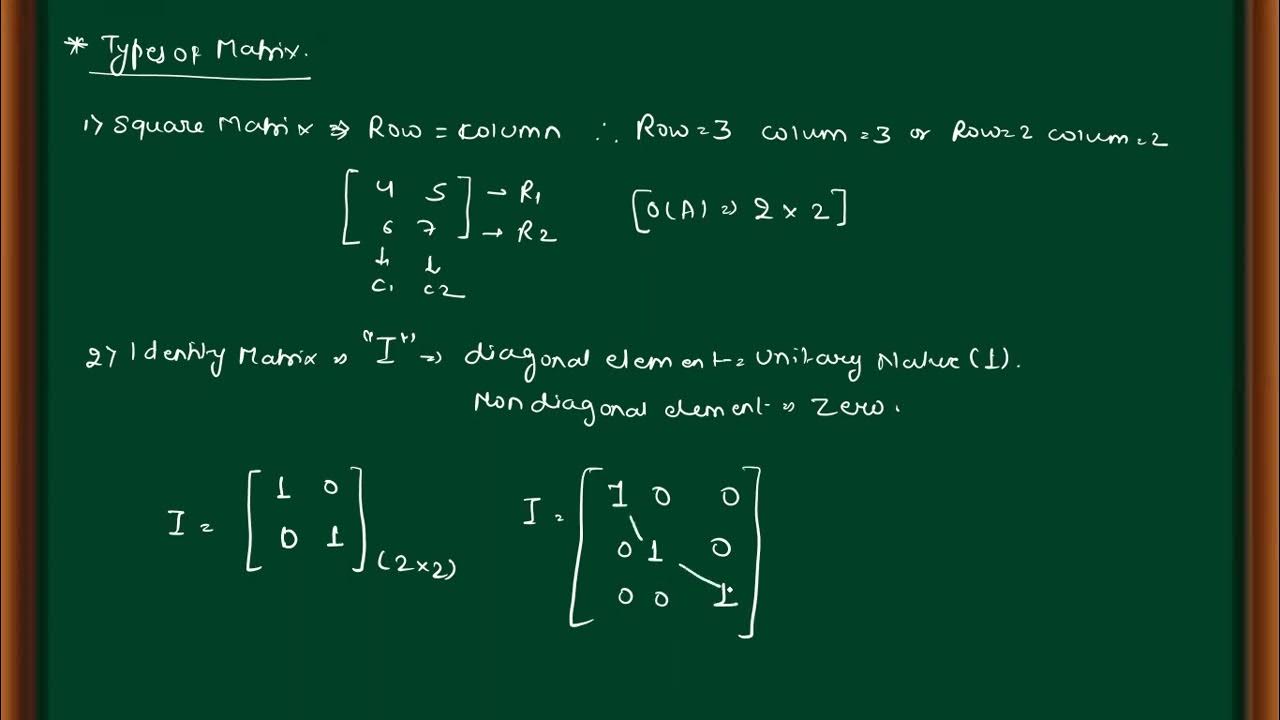 * Types of Matrix.
1) Square Matrix ⇒ Row = column ∴ Row = 3 colum = 3 or Row = 2 colum = 2
[ 4 5 ] → R1 [O(A) ⇒ 2 × 2]
[ 6 7 ] → R2
↓ ↓
C1 C2
2) Identity Matrix ⇒ "I" ⇒ diagonal element = unitary Value (1).
Non diagonal element ⇒ Zero.
I = [ 1 0 ] I = [ 1 0 0 ]
[ 0 1 ] (2×2) [ 0 1 0 ]
[ 0 0 1 ]